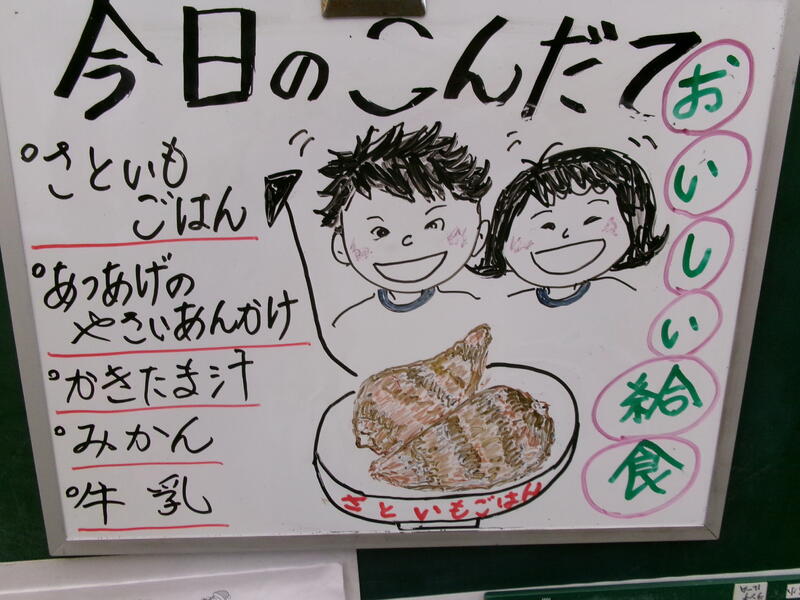 今日のこんだて
おいしい給食
°さといも
ごはん
°あつあげの
やさいあんかけ
°かきたま汁
°みかん
°牛乳
さといもごはん